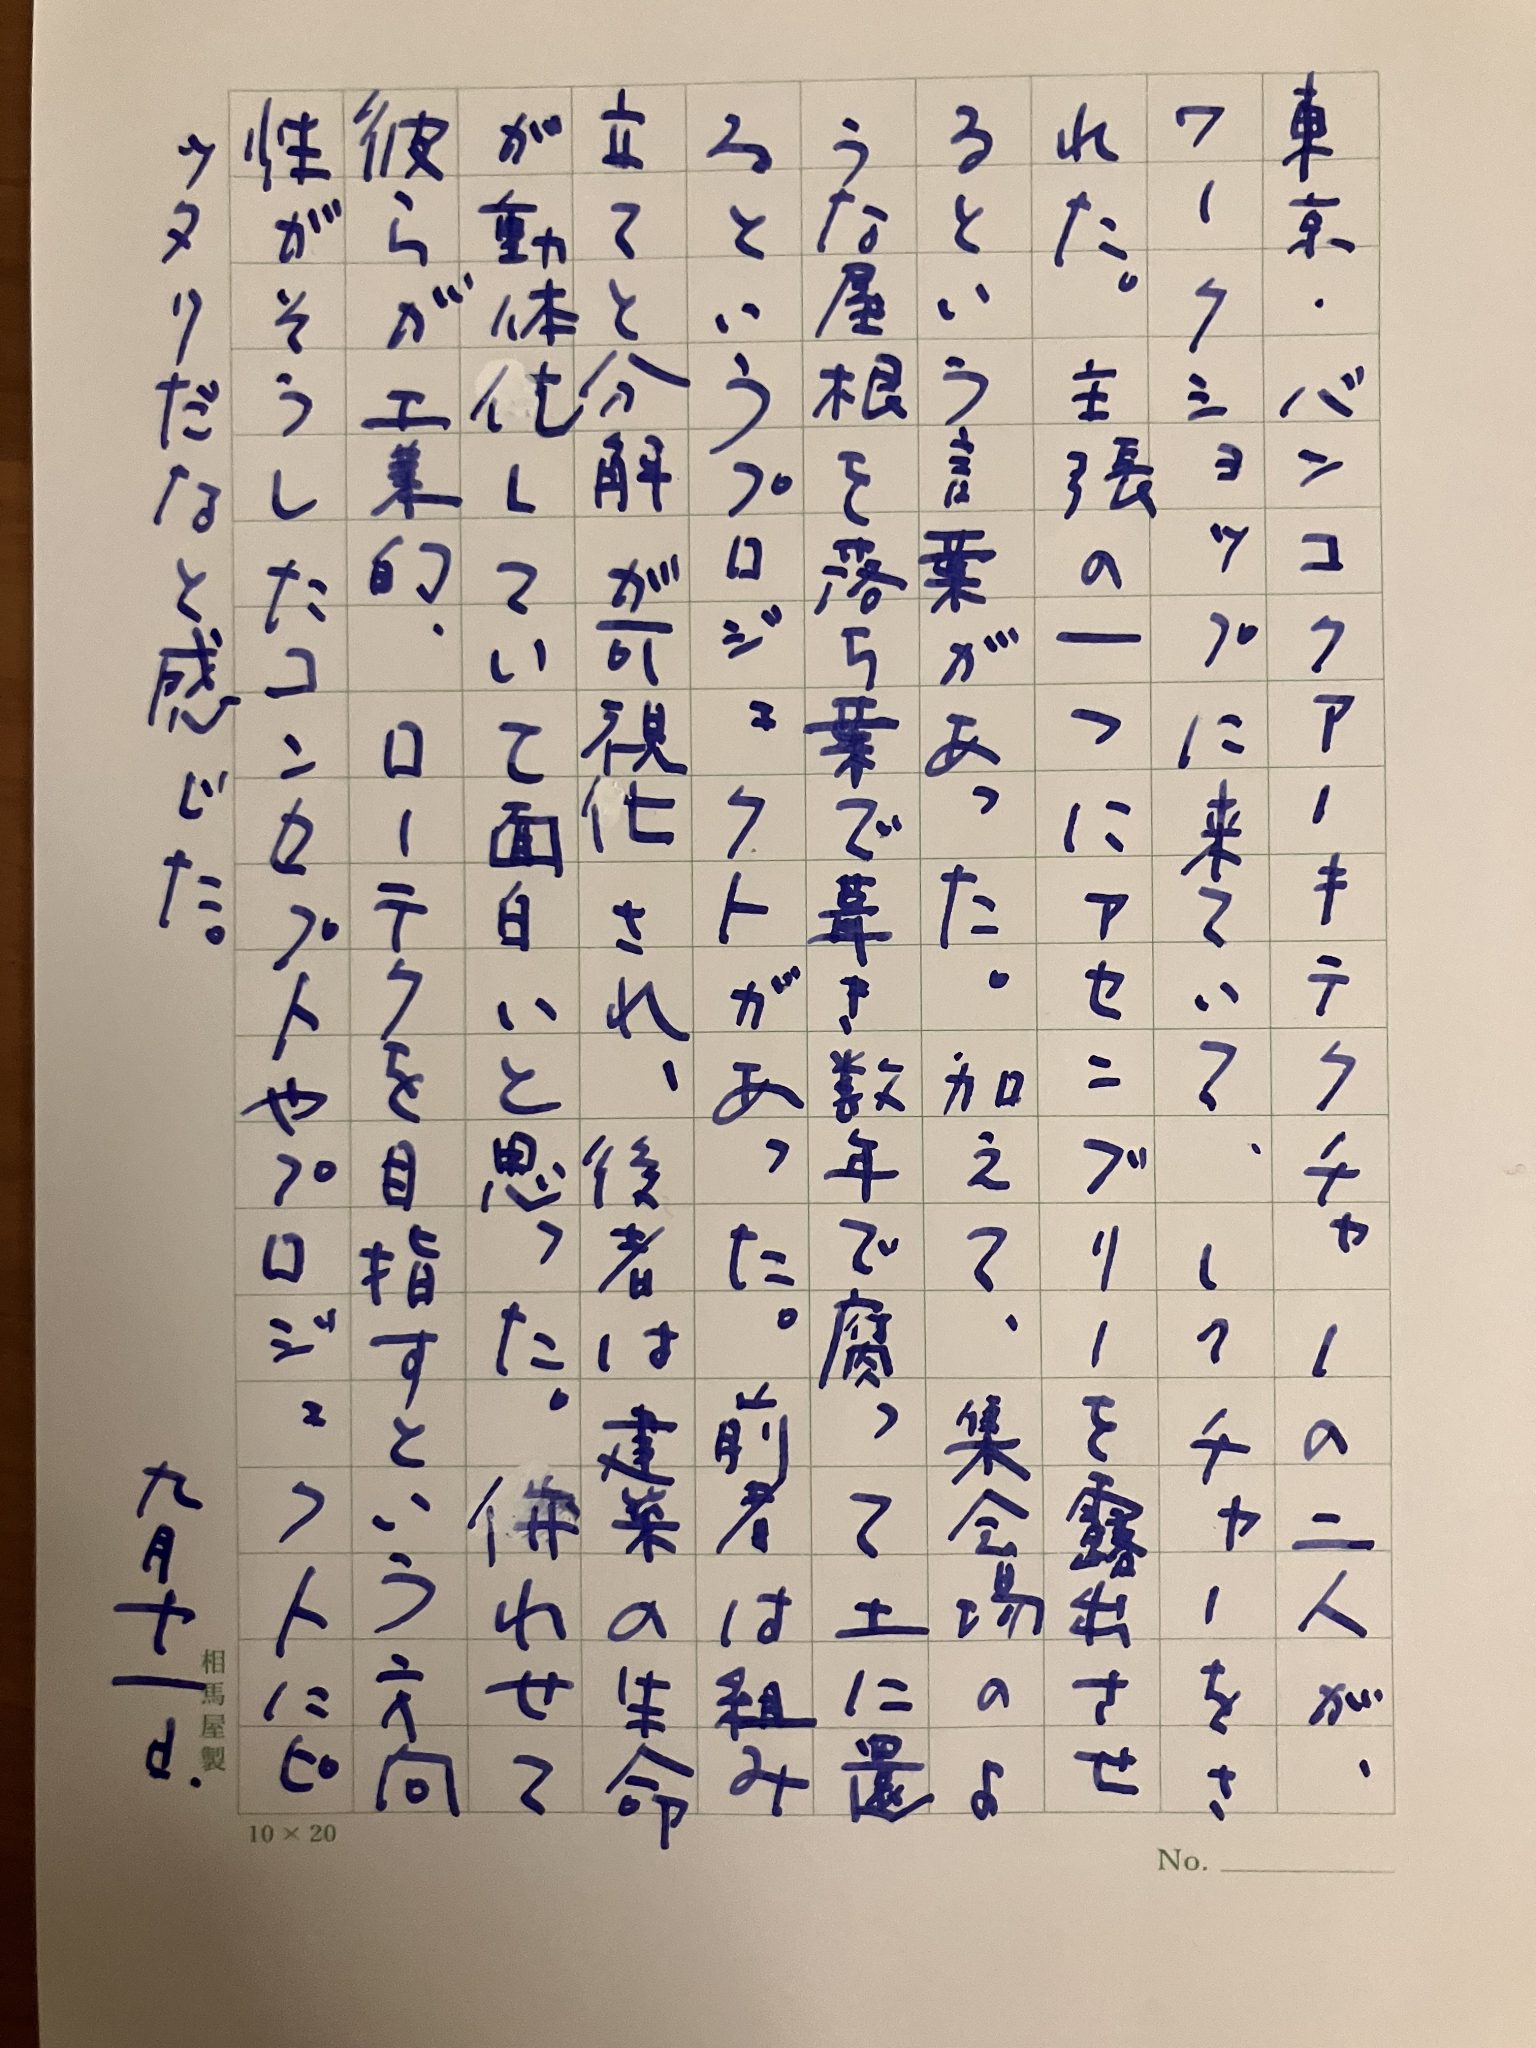 東京・バンコクアーキテクチャーの二人が、
ワークショップに来ていて、レクチャーをさ
れた。主張の一つにアセンブリーを露出させ
るという言葉があった。加えて、集会場のよ
うな屋根を落ち葉で葺き数年で腐って土に還
るというプロジェクトがあった。前者は組み
立てと分解が可視化され、後者は建築の生命
が動体化していて面白いと思った。併わせて
彼らが工業的・ローテクを目指すという方向
性がそうしたコンセプトやプロジェクトにピ
ッタリだなと感じた。
九月十一日.
相馬屋製
10 × 20
No.